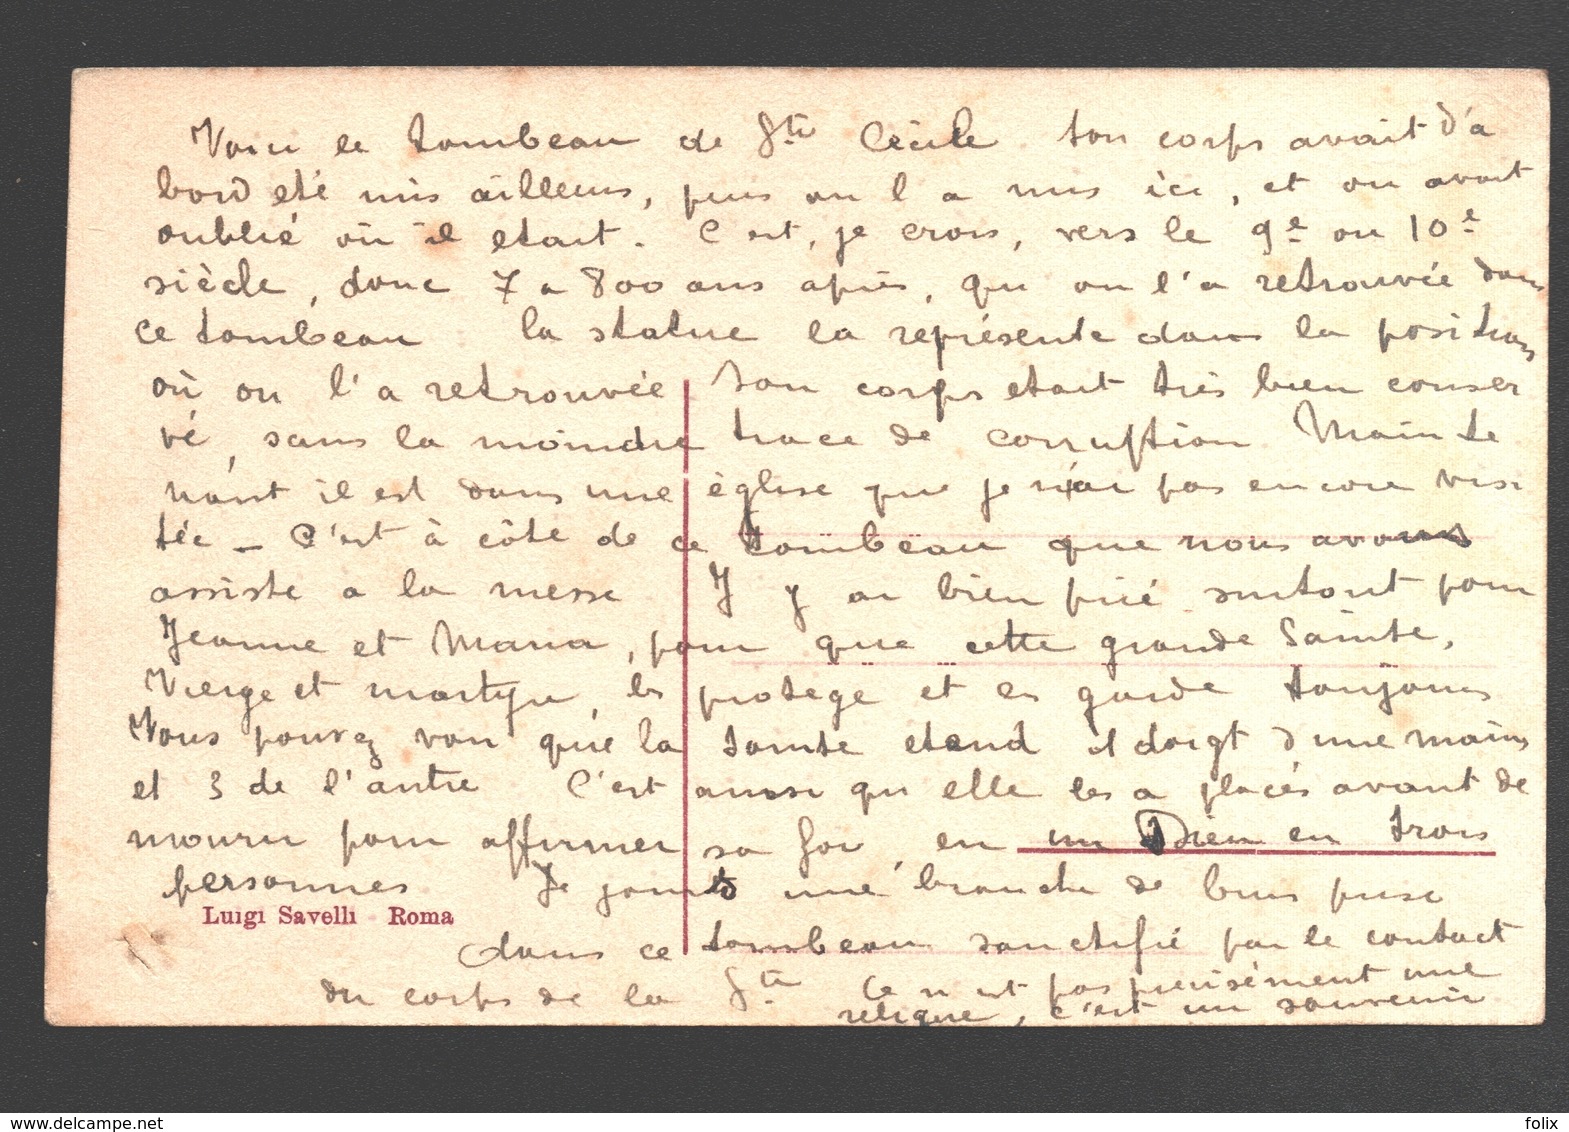 Voici le tombeau de Ste Cécile son corps avait d'a
bord eté mis ailleurs, puis on l a mis ici, et on avait
oublié où il etait. C est, je crois, vers le 9e ou 10e
siècle, donc 7 a 800 ans après, qu on l'a retrouvée dans
ce tombeau la statue la représente dans la position
où on l'a retrouvée Son corps etait très bien conser
vé, sans la moindre trace de corruption Mainte
nant il est dans une église que je n'ai pas encore visi
tée – C'est à côte de ce tombeau que nous avons
assiste a la messe J y ai bien prié surtout pour
Jeanne et Maria, pour que cette grande Sainte,
Vierge et martyre, les protège et les garde toujours
Vous pouvez voir que la sainte etend 1 doigt d une main
et 3 de l'autre C'est ainsi qu elle les a placés avant de
mourir pour affirmer sa foi, en un Dieu en trois
personnes Je joins une branche de buis prise
Luigi Savelli Roma
dans ce tombeau sanctifié par le contact
du corps de la Ste Ce n est pas precisément une
relique, c'est un souvenir
delcampe.net
folix